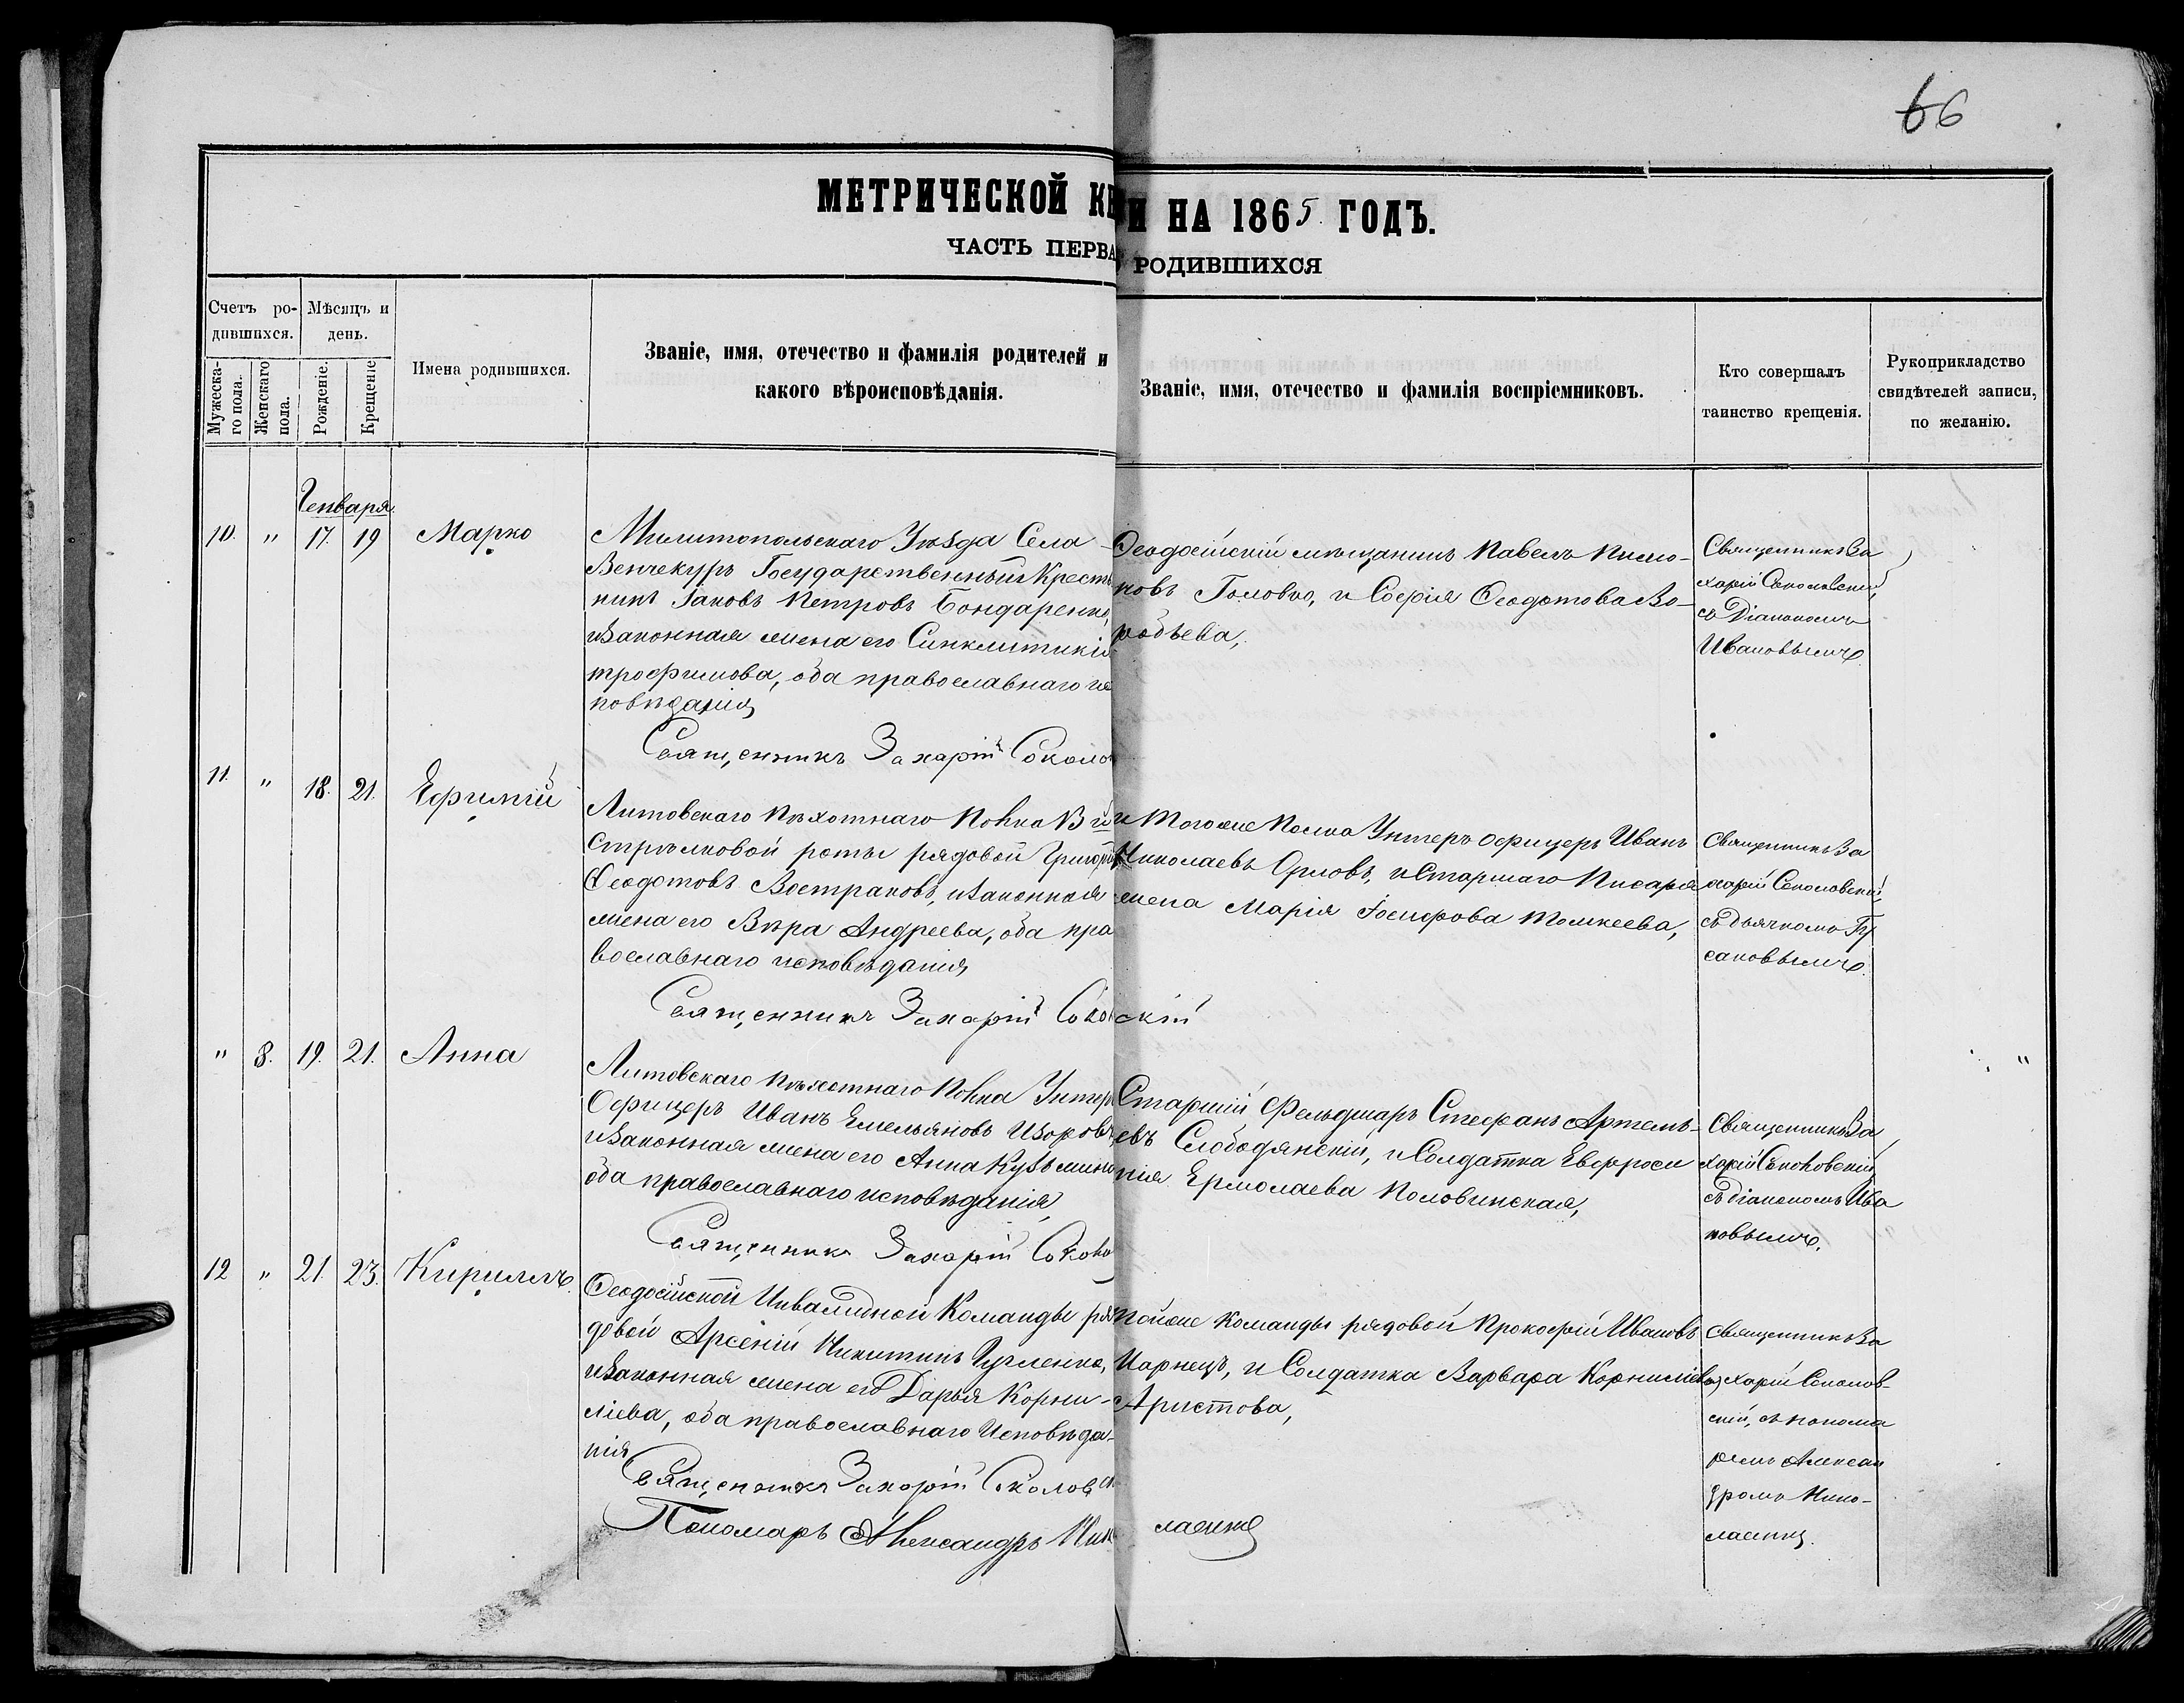 66
МЕТРИЧЕСКОЙ КН
И НА 1865 ГОДЪ.
ЧАСТЬ ПЕРВА
РОДИВШИХСЯ
Счетъ ро-
дившихся.
Мѣсяцъ и
день.
Мужеска-
го пола.
Женскаго
пола.
Рожденіе.
Крещеніе
Имена родившихся.
Званіе, имя, отечество и фамилія родителей и
какого вѣроисповѣданія.
Званіе, имя, отечество и фамилія воспріемниковъ.
Кто совершалъ
таинство крещенія.
Рукоприкладство
свидѣтелей записи,
по желанію.
Генваря
10. " 17. 19 Марко
Милитопольскаго Уѣзда Села
Государственный Кресть
нинъ Іаковъ Петровъ Бондаренко,
и законная жена его Синклитикія
трофимова, оба православнаго ис
повѣданія
Священникъ Захарій Соколо
Феодосійскій мѣщанинъ Павелъ
новъ Головко, и Софія Феодотова Во-
робьева,
Священникъ За
харій Соколовскій,
съ Діакономъ
Ивановымъ
11. " 18. 21. Ефимій
Литовскаго пѣхотнаго полка
Стрѣлковой роты рядовой Григорій
Феодотовъ Востраковъ, и законная
жена его Вѣра Андреева, оба пра
вославнаго исповѣданія
Священникъ Захарій Соко
скій
Того же Полка Унтеръ офицеръ Иванъ
Николаевъ Орловъ, и Старшаго Писаря
жена Марія Іосифова Томкеева,
Священникъ За
харій Соколовскій,
съ дьячкомъ Гу
сановымъ
" 8. 19. 21. Анна
Литовскаго пѣхотнаго полка Унтеръ
Офицеръ Иванъ Емельяновъ
и законная жена его Анна Кузьмина
оба православнаго исповѣданія,
Священникъ Захарій Соколо
Старшій Фельдшаръ Стефанъ Артемь-
евъ Слободянскій, и Солдатка Евфроси
нія Ермолаева Половинская,
Священникъ За
харій Соколовскій
съ діакономъ Ива
новымъ.
"
12 " 21. 23. Кириллъ
Феодосійской Инвалидной Команды ря
довой Арсеній Никитинъ
и законная жена его Дарья Корни-
ліева, оба православнаго Исповѣда-
нія
Священникъ Захарій Соколовск
Пономарь Александръ Ник
лаенко
той же Команды рядовой Прокофій Ивановъ
и Солдатка Варвара Корниліева
Аристова,
Священникъ За
харій Соколов-
скій, съ понома
ремъ Алексан
дромъ Нико-
лаенко.